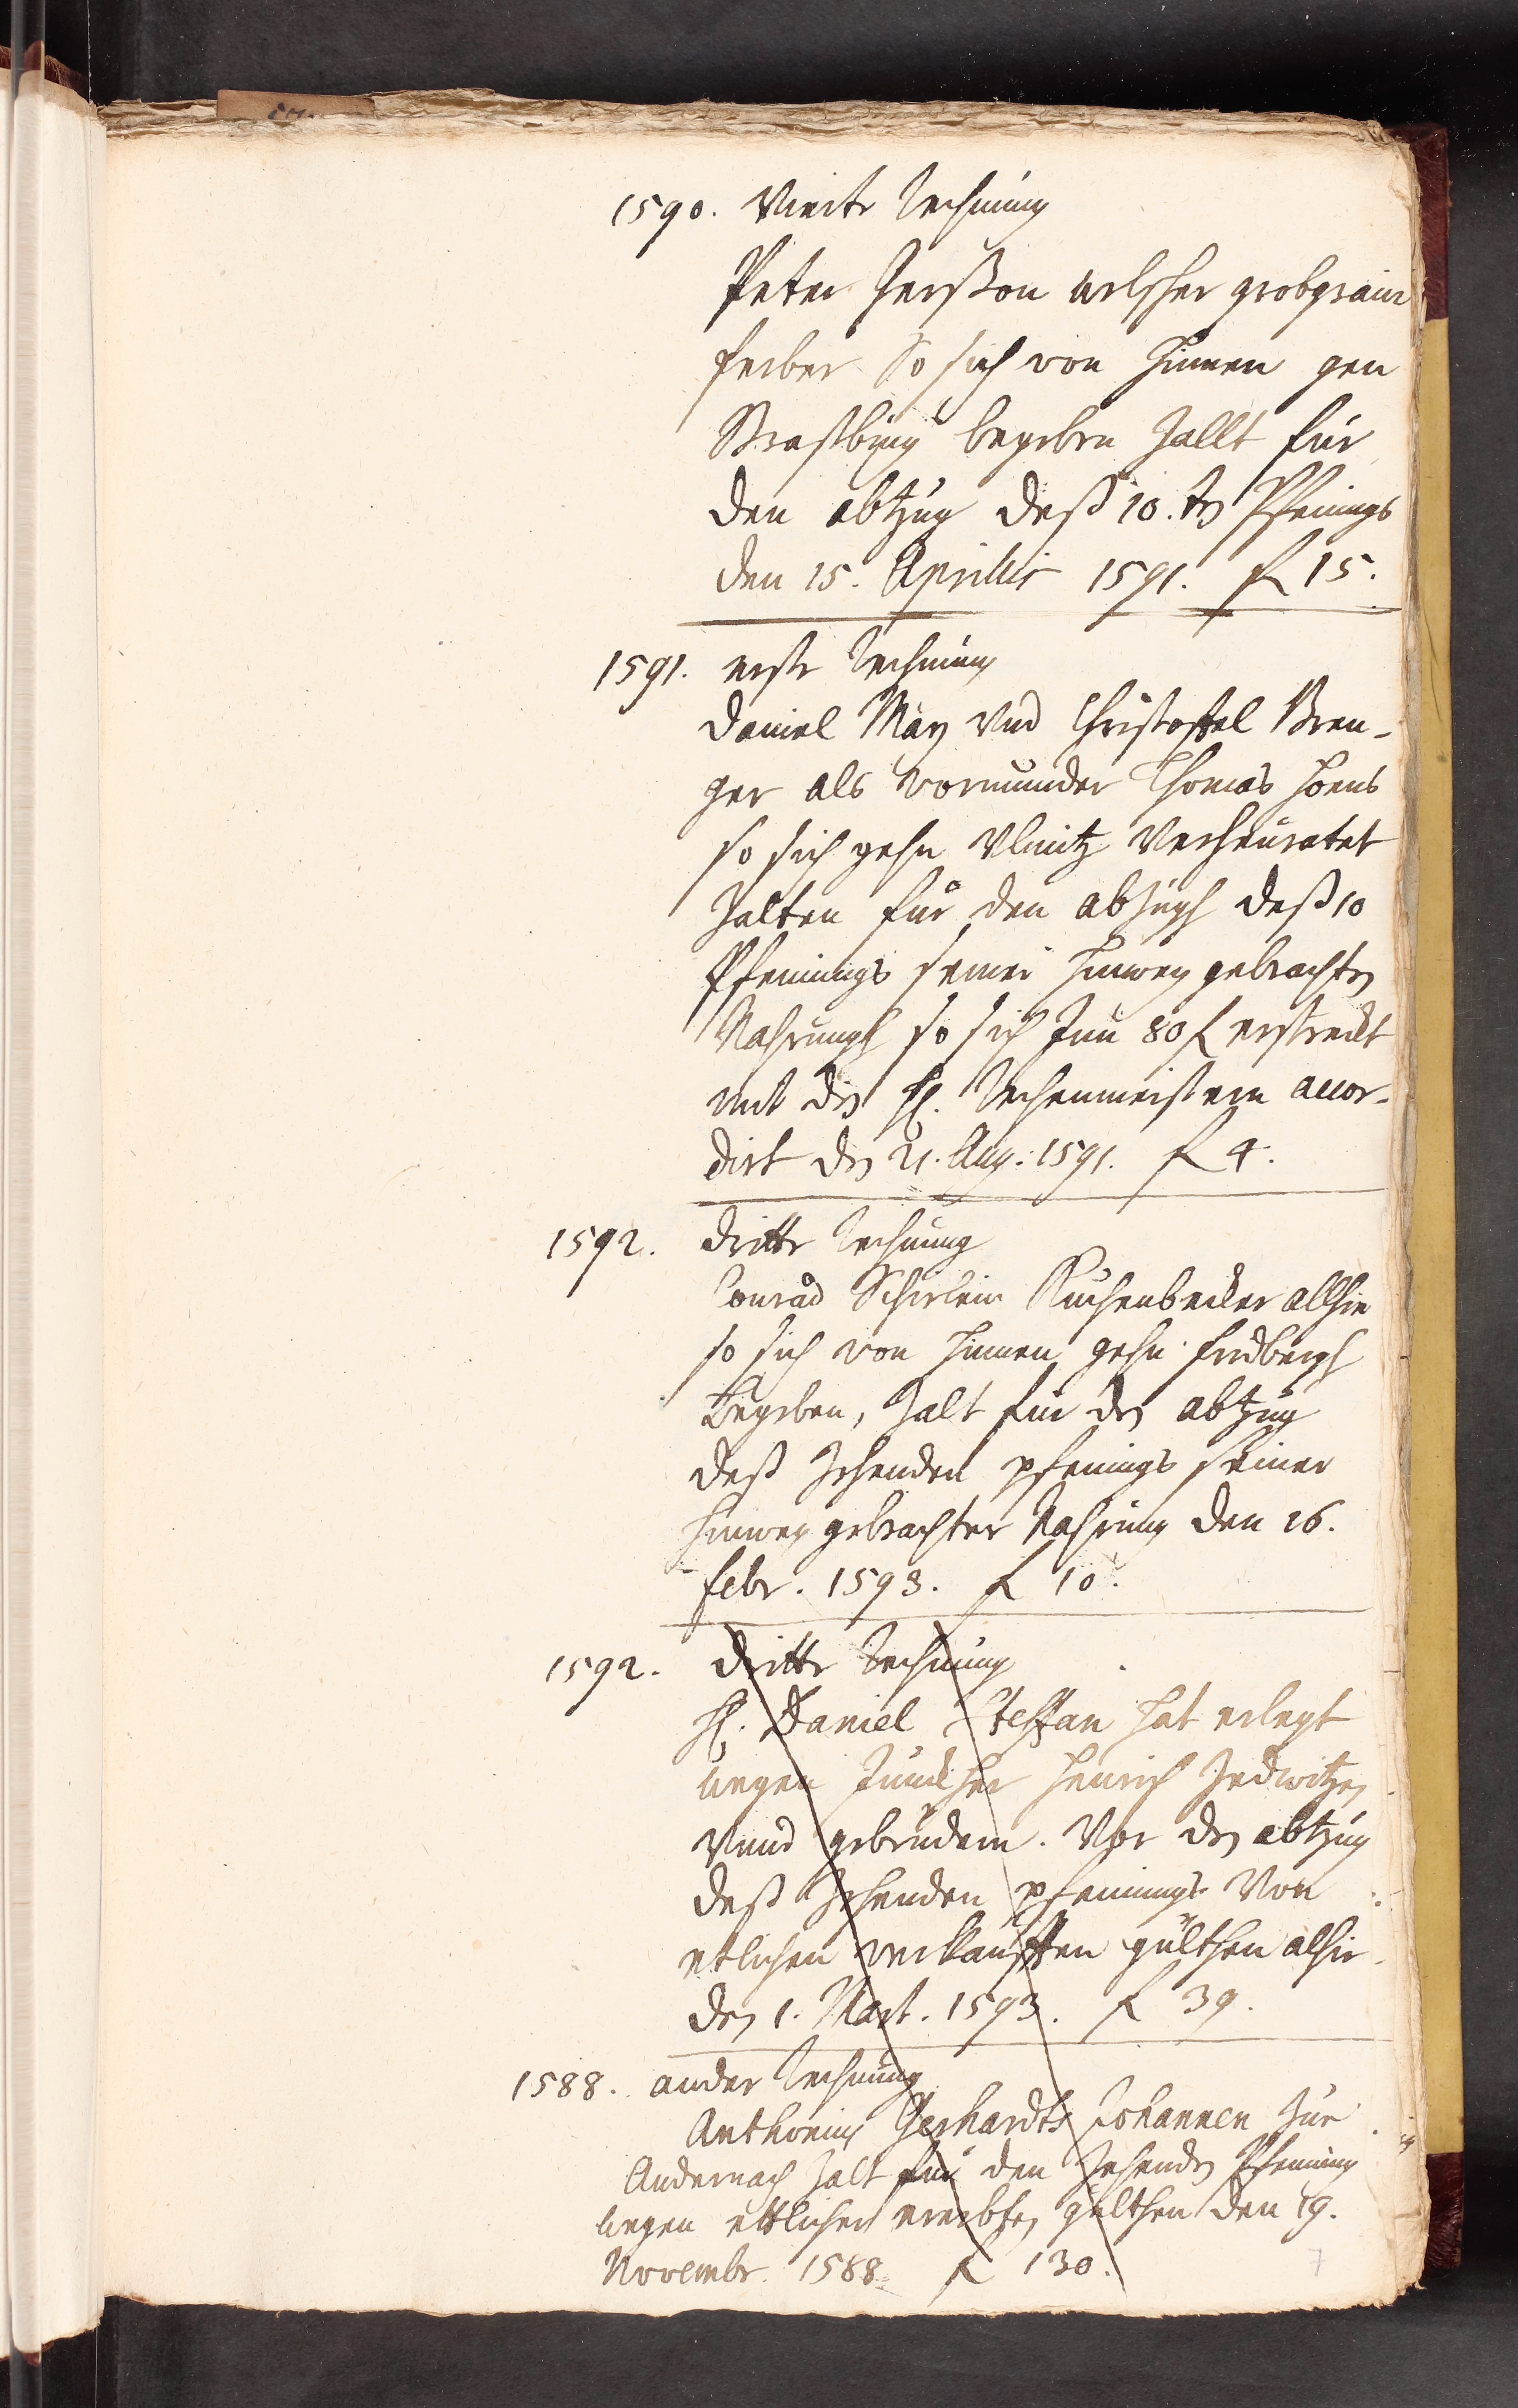 1590. Vierte Rechnung
Peter Gerßon welscher grobgrain
ferber So sich von hinnen gen
Straßburg begeben Zallt für
den abtzug deß 10.ten Pfenings
den 15. Aprillis 1591. f 15.
1591. erste Rechnung
Daniel May vnd Christoffel Bren-
ger als Vormunder Thomas Hoens
so sich gehn Vlmitz Verheuratet
Zalten für den abzugh deß 10
Pfennings seiner hinweg gebrachten
Nahrungh so sich Inn 80 f erstreckt
mit den H. Rechenmeistern accor-
dirt den 21. Aug: 1591. f 4.
1592. dritte Rechnung
Conrad Scheirlein Kuchenbecker allhie
so sich von hinnen gehn fridbergh
Begeben, Zalt für den abtzug
deß Zehenden pfenings seiner
hinweg gebrachter Nahrung den 26.
febr. 1593. f 10.
1592. dritte Rechnung
H. Daniel Steffan hat erlegt
wegen Junckher Henrich Zedwitzen
Vnnd gebrüdern. Vor den abtzug
deß Zehenden pfennings Von
etlichen verkaufften gülthen alhie
den 1. Mart. 1593. f 39.
1588. ander Rechnung
Anthonius Gerhardts Johannen Zue
Andernach Zalt für den Zehenden Pfenning
wegen ettlicher ererbten gülthen den 19.
Novembr. 1588. f 130.
7